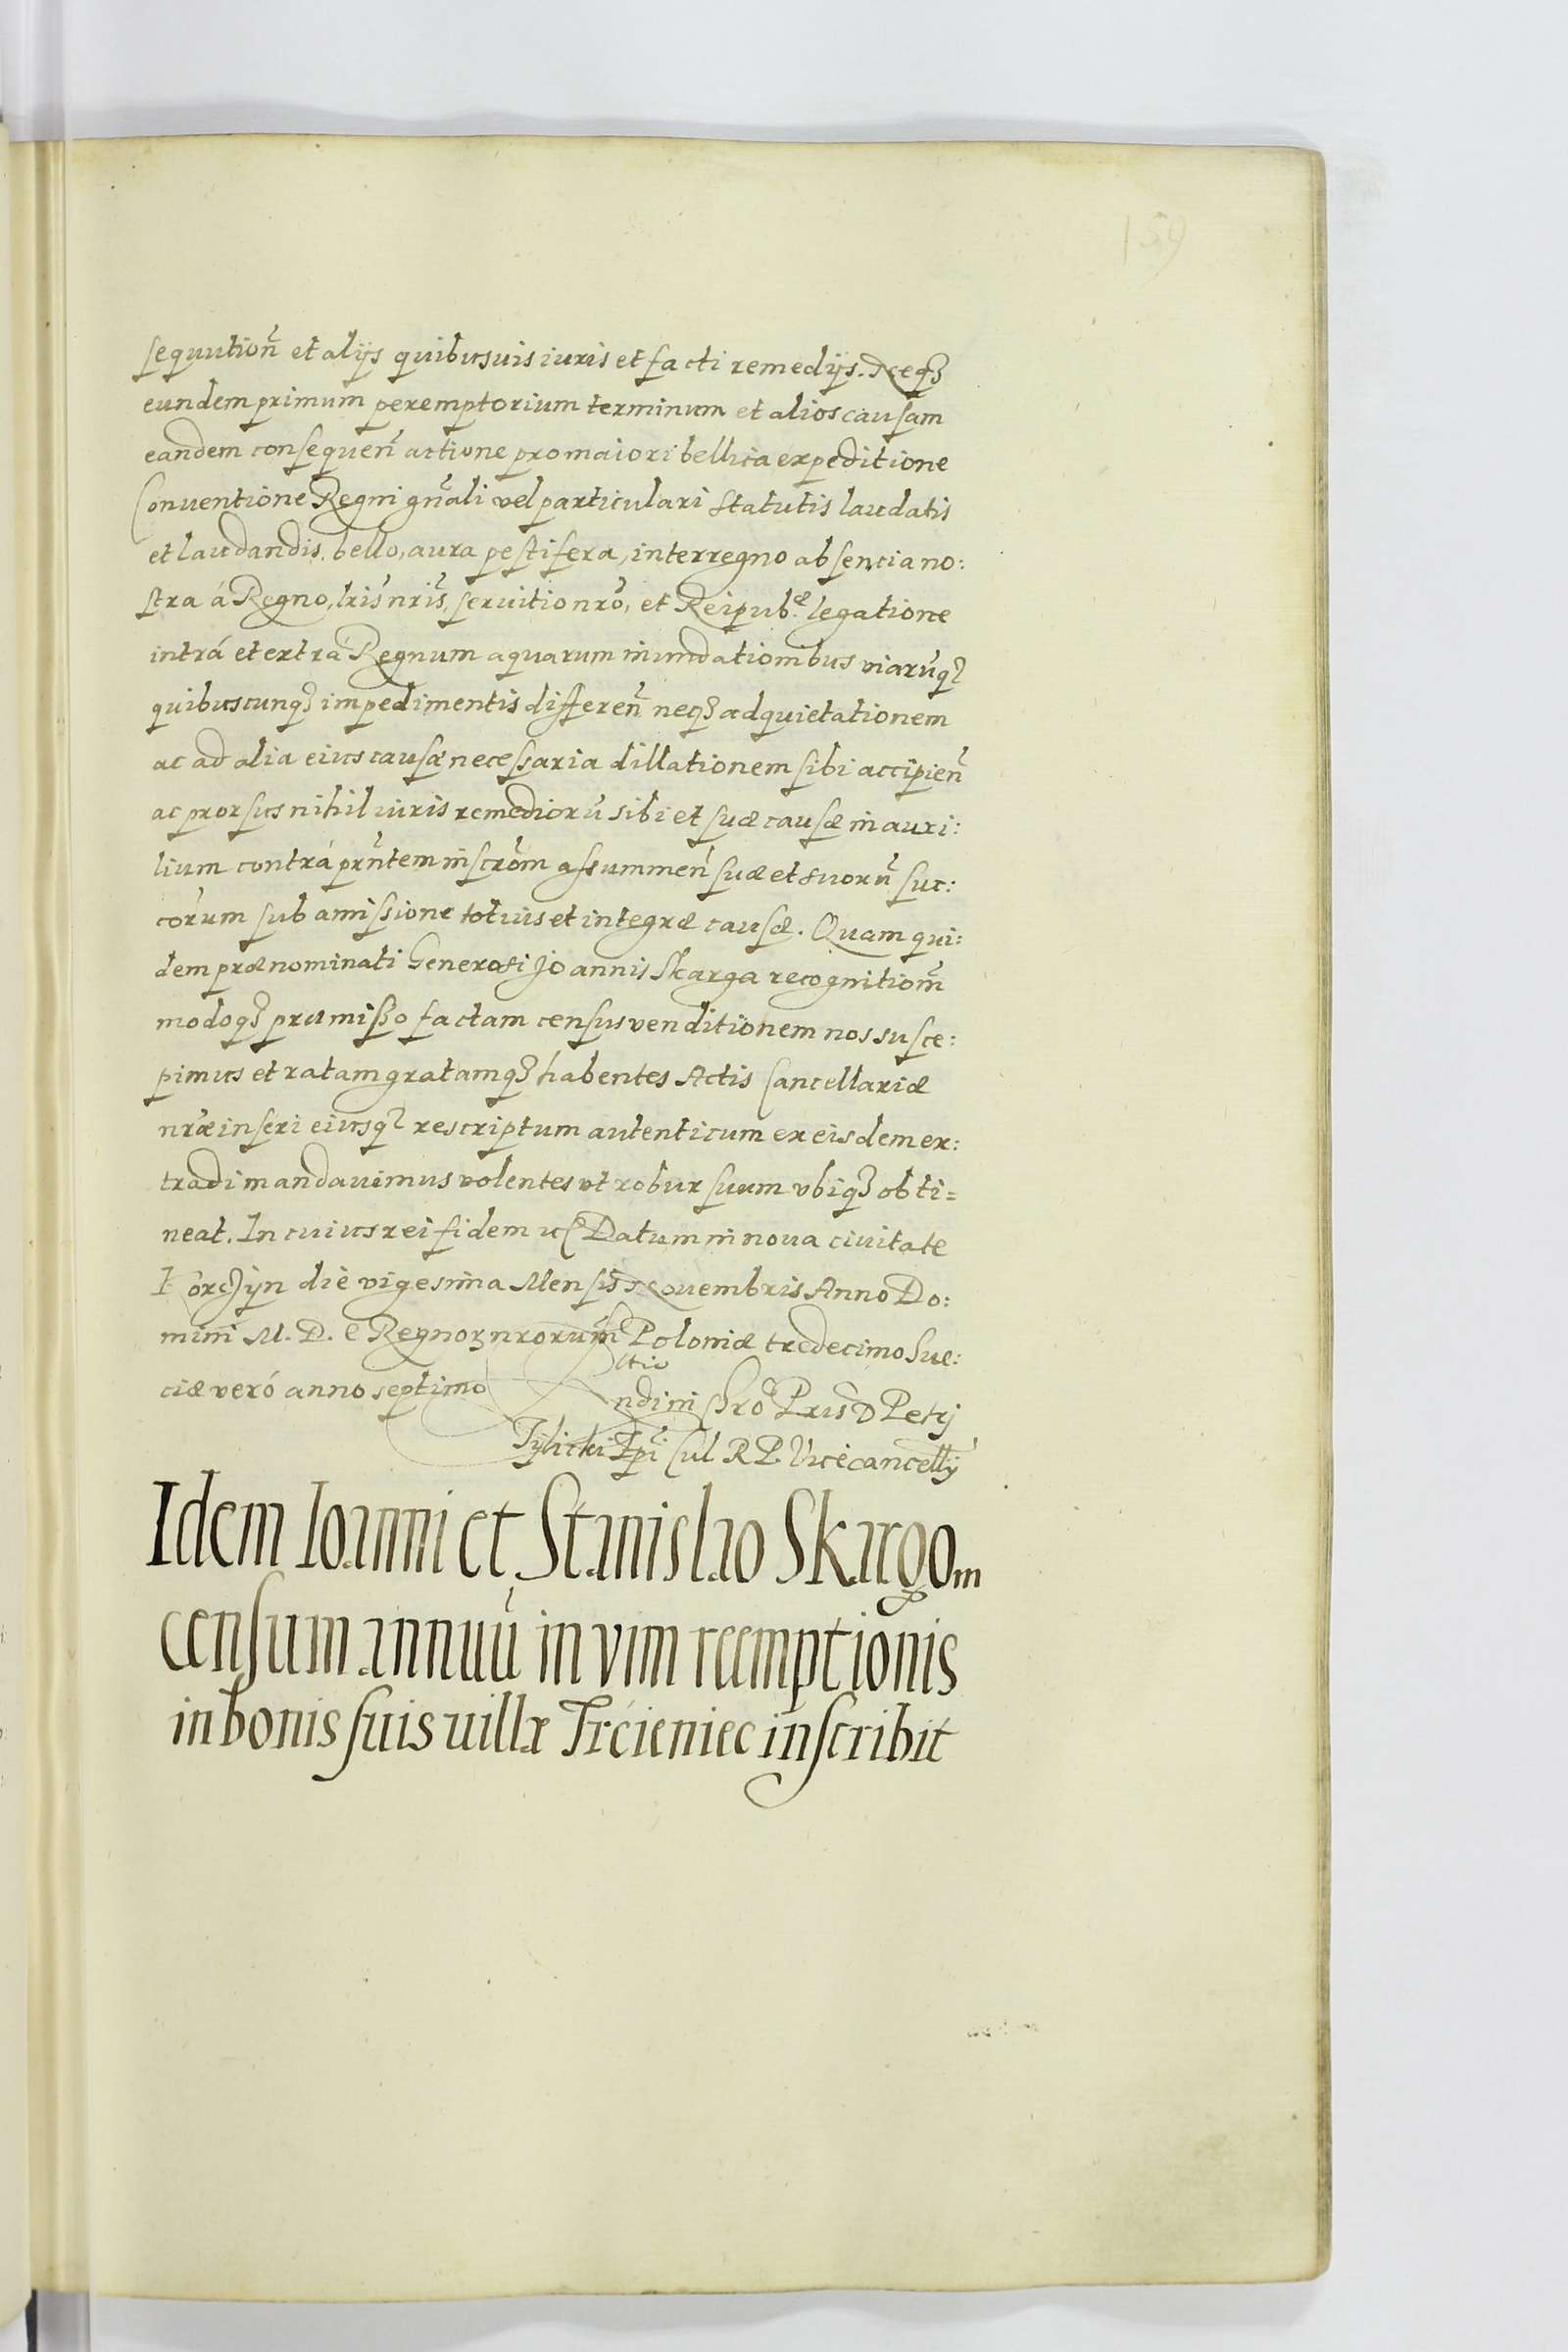 159
sequutioñ et alijs quibusuis iuris et facti remedijs. Neqʒ
eundem primum peremptorium terminum et alios causam
eandem consequeñ actione pro maiori bellica expeditione
Conuentione Regni gñali vel particulari statutis laudatis
et laudandis, bello, aura pestifera, interregno absencia no:
stra á Regno, lris nris, seruitio nro, et Reipubᵃᵉ legatione
intrá et extrá Regnum aquarum inundationibus viarũqʒ
quibuscunqʒ impedimentis differeñ neqʒ ad quietationem
ac ad alia eius causæ necessaria dillationem sibi accipieñ
ac prorsus nihil iuris remediorũ sibi et suæ causæ in auxi:
lium contrá prñtem inscrom assummeñ suæ et suorũ suc:
corum sub amissione totius et integræ causæ. Quam qui:
dem prænominati Generosi Joannis Skarga recognitioñ
modoqʒ præmisso factam census venditionem nos susce:
pimus et ratam gratamqʒ habentes Actis Cancellariæ
nræ inseri eiusqʒ rescriptum autenticum ex eisdem ex:
tradi mandauimus volentes vt robur suum vbiqʒ obti=
neat. In cuius rei fidem Datum in noua ciuitate
Korcʒÿn die vigesima Mensis Nouembris Anno Do:
mini M. D. C Regnoʒ nrorum Poloniæ tredecimo Sue:
ciæ veró anno septimo
Rndi in Chro Pris D Petrj
Tÿlicki Epi Cul R P. Vicecancellÿ
Idem Ioanni et Stanislao Skargom
censum annuũ in vim reemptionis
in bonis suis uillæ Trcieniec inscribit